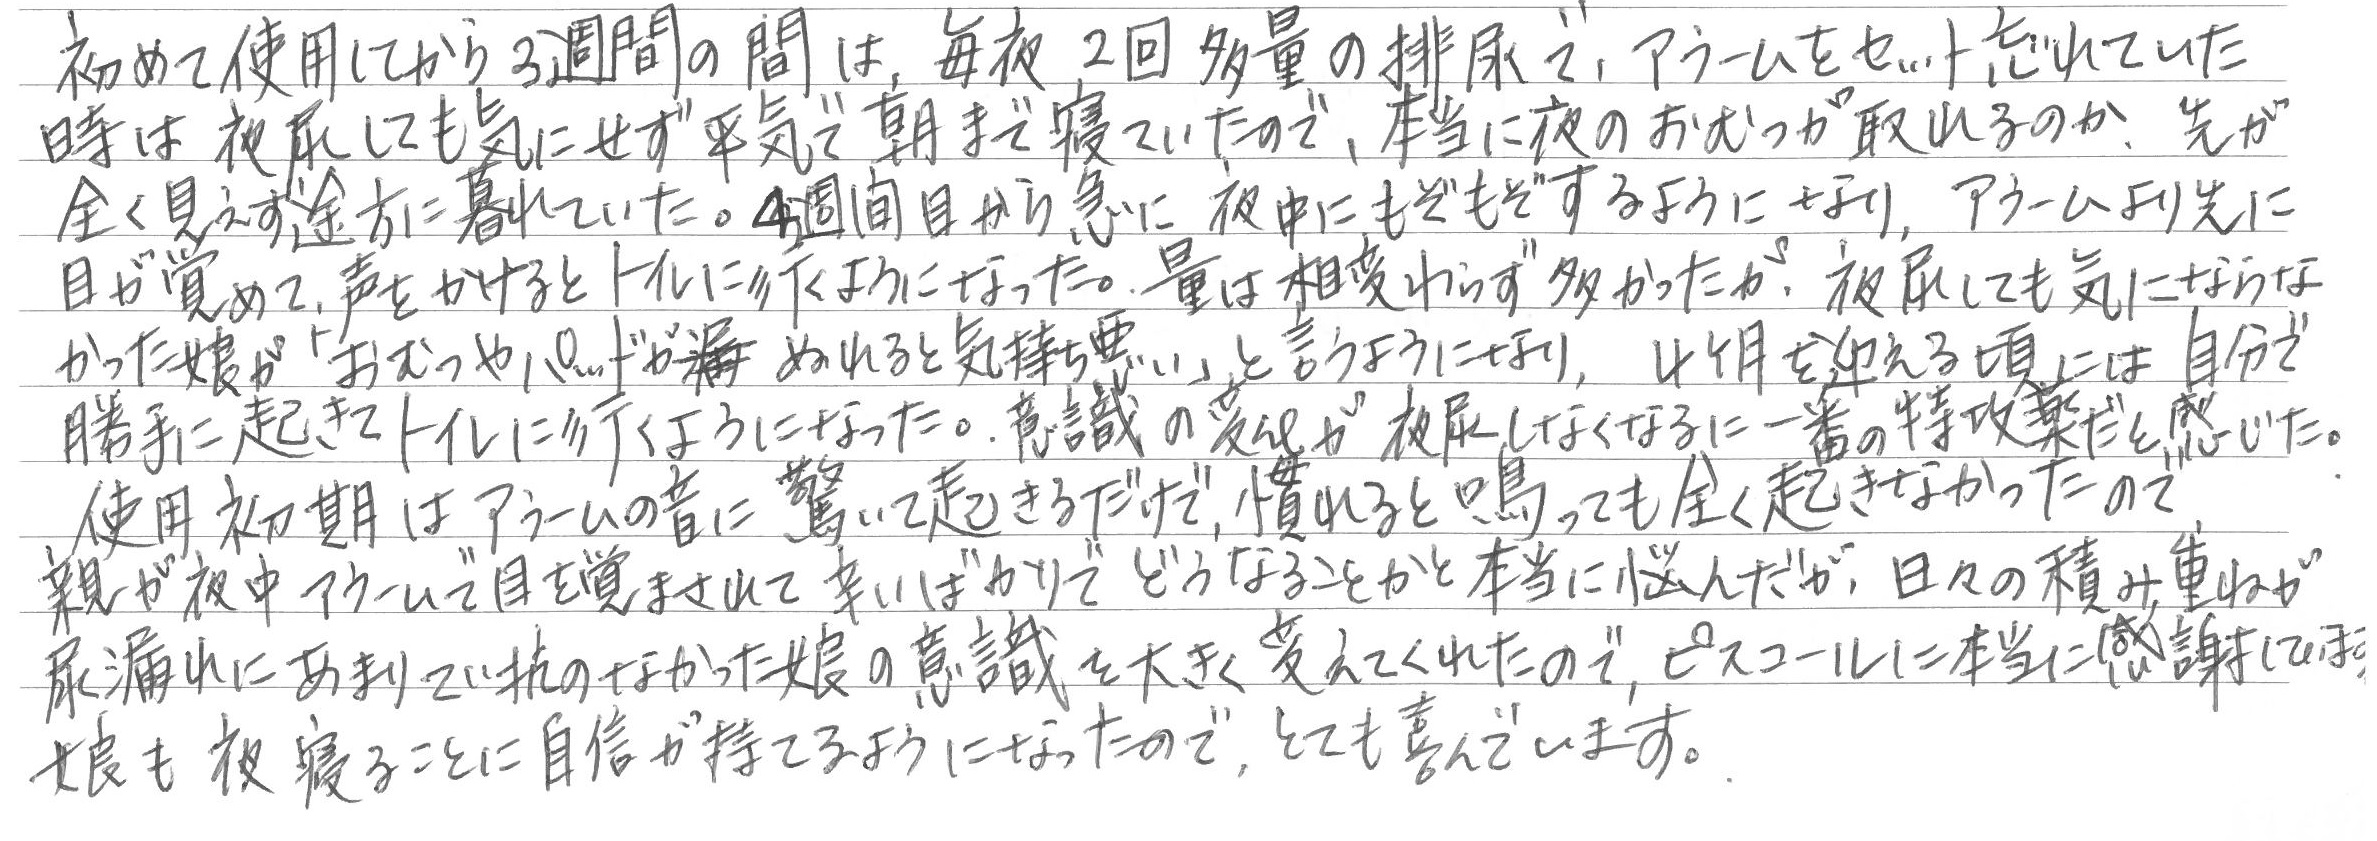 初めて使用してから3週間の間は、毎夜2回多量の排尿で、アラームをセット忘れていた
時は夜尿しても気にせず平気で朝まで寝ていたので、本当に夜のおむつが取れるのか、先が
全く見えず途方に暮れていた。4週間目から急に夜中にもぞもぞするようになり、アラームより先に
目が覚めて、声をかけるとトイレに行くようになった。量は相変わらず多かったが、夜尿しても気にならな
かった娘が「おむつやパッドがぬれると気持ち悪い」と言うようになり、4ケ月を迎える頃には自分で
勝手に起きてトイレに行くようになった。意識の変化が夜尿しなくなるに一番の特攻薬だと感じた。
使用初期はアラームの音に驚いて起きるだけで、慣れると鳴っても全く起きなかったので
親が夜中アラームで目を覚まされて辛いばかりでどうなることかと本当に悩んだが、日々の積み重ねが
尿漏れにあまりてい抗のなかった娘の意識を大きく変えてくれたので、ピスコールに本当に感謝しています
娘も夜寝ることに自信が持てるようになったので、とても喜んでいます。